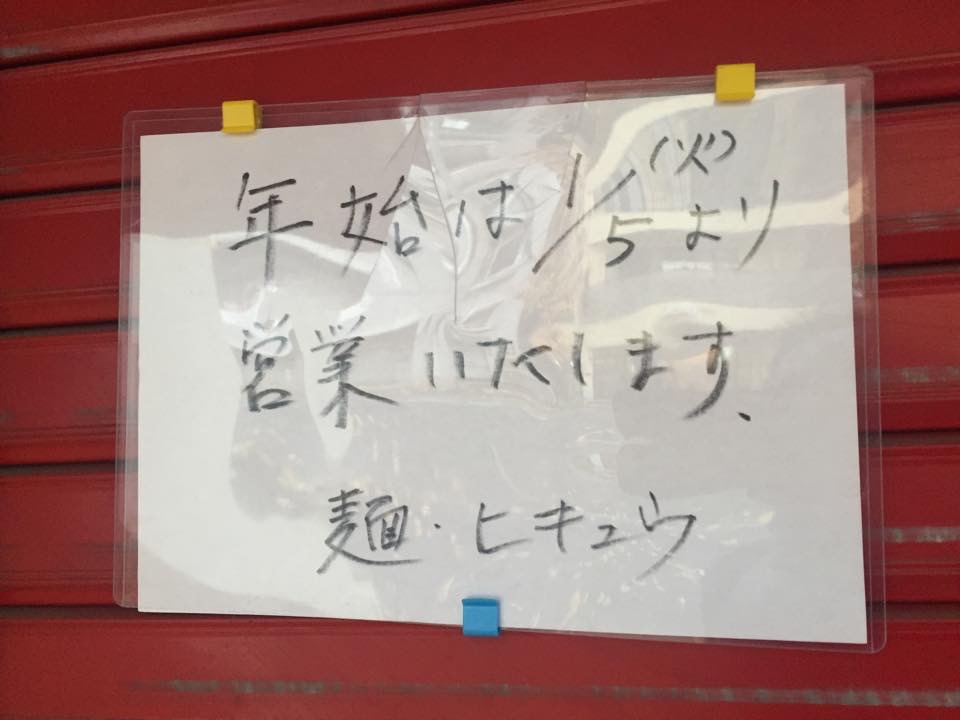 年始は1/5(火)より
営業いたします、
麺・ヒキュウ